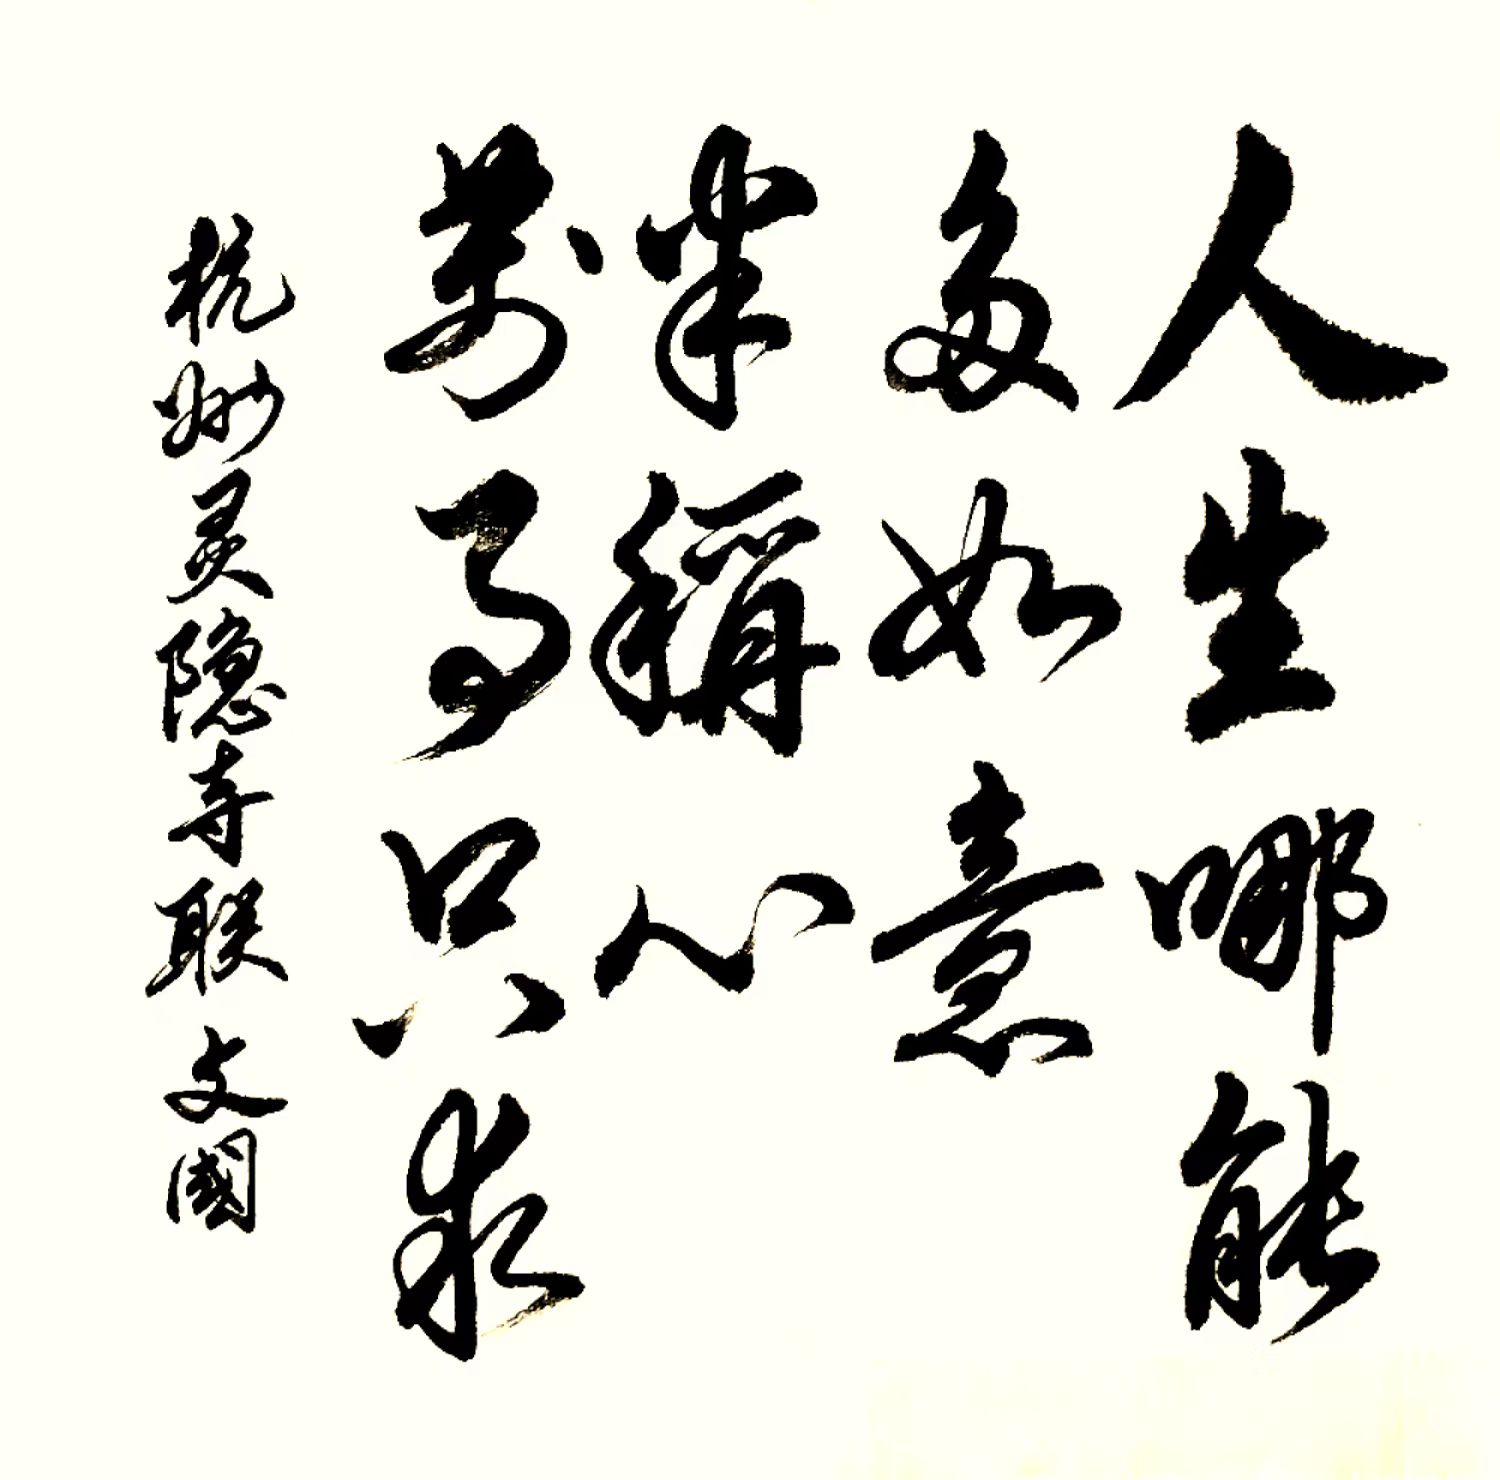 人生哪能
多如意
半称心
萬事只求
杭州灵隐寺联 文國